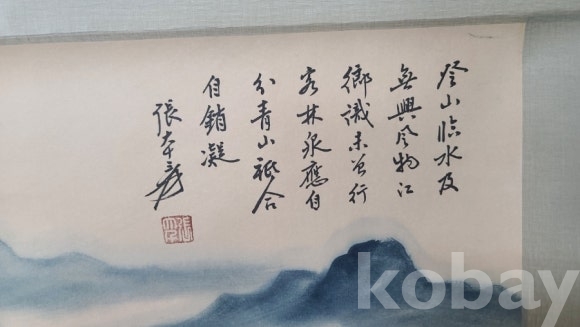 登山臨水及
無興風物江
鄉識未曾行
客林泉應自
分青山祗合
自銷凝
張大千
kobay